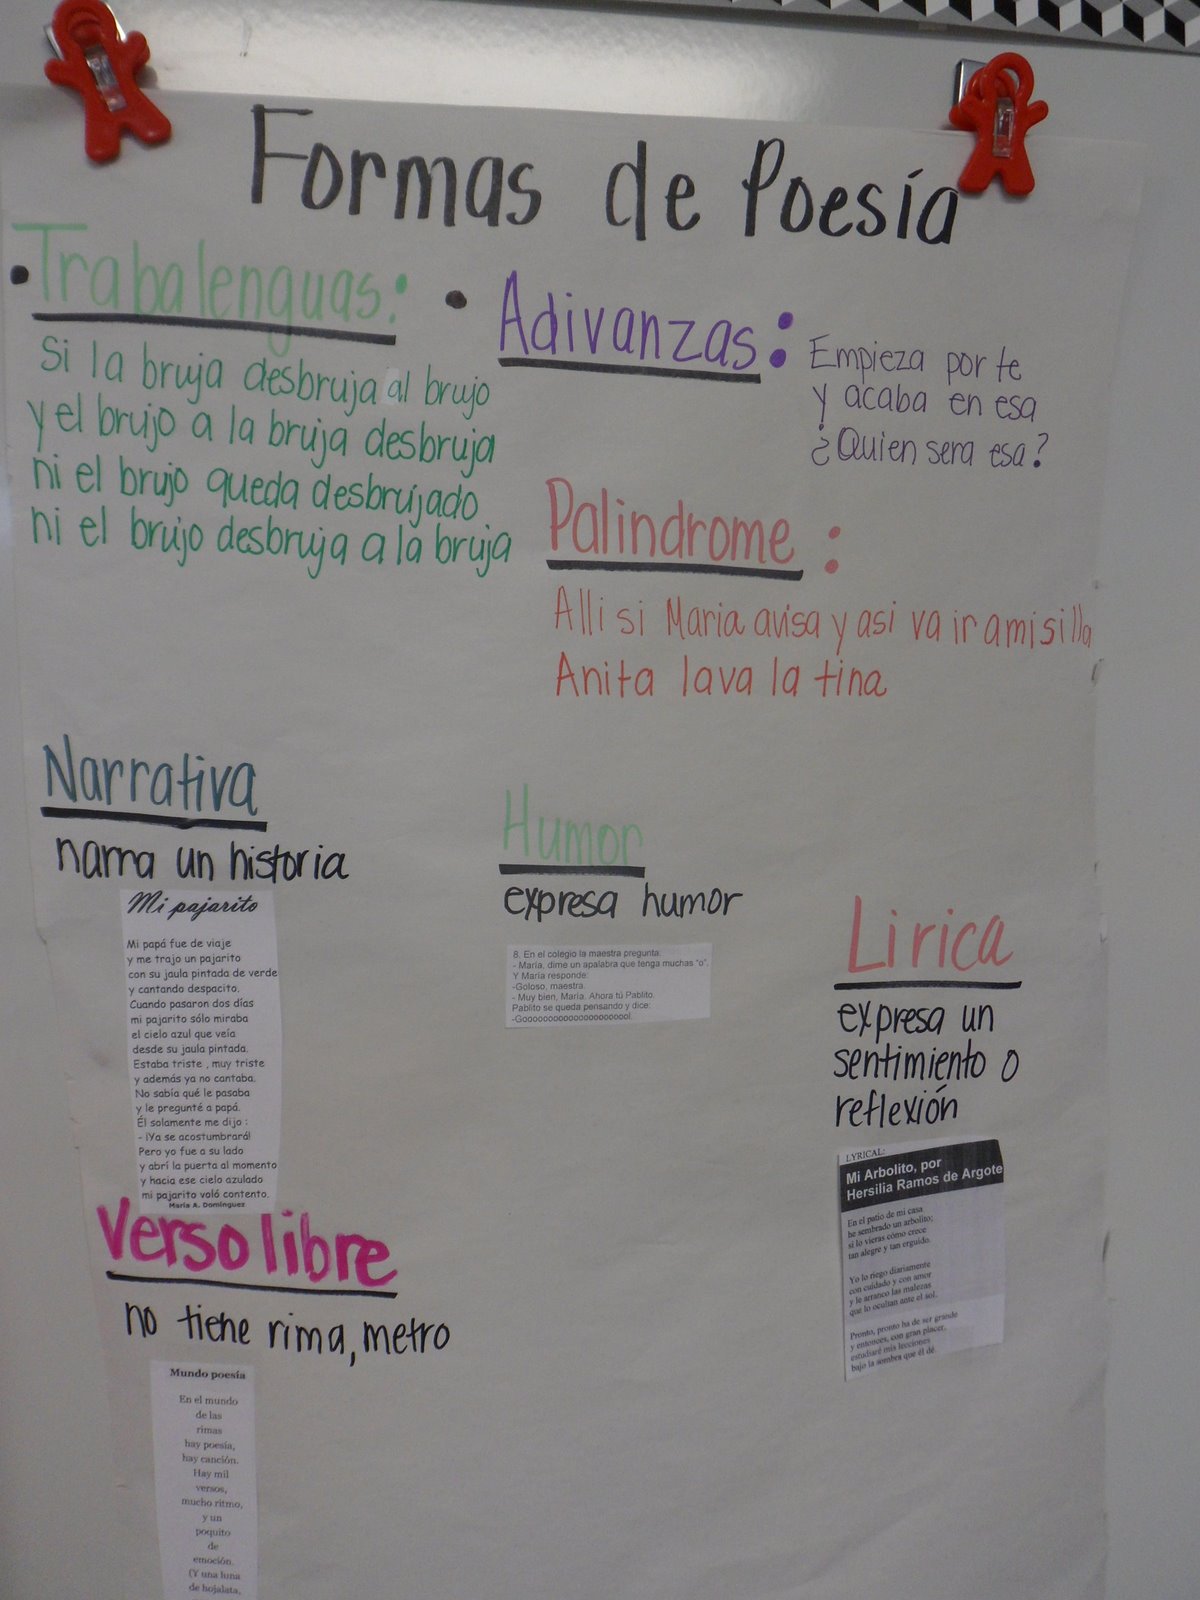 Formas de Poesía
• Trabalenguas:
Si la bruja desbruja al brujo
y el brujo a la bruja desbruja
ni el brujo queda desbrujado
ni el brujo desbruja a la bruja
• Adivanzas:
Empieza por te
y acaba en esa
¿Quien sera esa?
Palindrome :
Alli si Maria avisa y asi va ir amisilla
Anita lava la tina
Narrativa
narra un historia
Mi pajarito
Mi papá fue de viaje
y me trajo un pajarito
con su jaula pintada de verde
y cantando despacito.
Cuando pasaron dos días
mi pajarito sólo miraba
el cielo azul que veía
desde su jaula pintada.
Estaba triste , muy triste
y además ya no cantaba.
No sabía qué le pasaba
y le pregunté a papá.
Él solamente me dijo :
- ¡Ya se acostumbrará!
Pero yo fue a su lado
y abrí la puerta al momento
y hacia ese cielo azulado
mi pajarito voló contento.
María A. Domínguez
Humor
expresa humor
8. En el colegio la maestra pregunta.
- María, dime un apalabra que tenga muchas "o".
Y María responde:
-Goloso, maestra.
- Muy bien, María. Ahora tú Pablito.
Pablito se queda pensando y dice:
-Goooooooooooooooooooool.
Lirica
expresa un
sentimiento o
reflexión
LYRICAL:
Mi Arbolito, por
Hersilia Ramos de Argote
En el patio de mi casa
he sembrado un arbolito;
si lo vieras cómo crece
tan alegre y tan erguido.
Yo lo riego diariamente
con cuidado y con amor
y le arranco las malezas
que lo ocultan ante el sol.
Pronto, pronto ha de ser grande
y entonces, con gran placer,
estudiaré mis lecciones
bajo la sombra que él dé.
Verso libre
no tiene rima, metro
Mundo poesía
En el mundo
de las
rimas
hay poesía,
hay canción.
Hay mil
versos,
mucho ritmo,
y un
poquito
de
emoción.
(Y una luna
de hojalata,